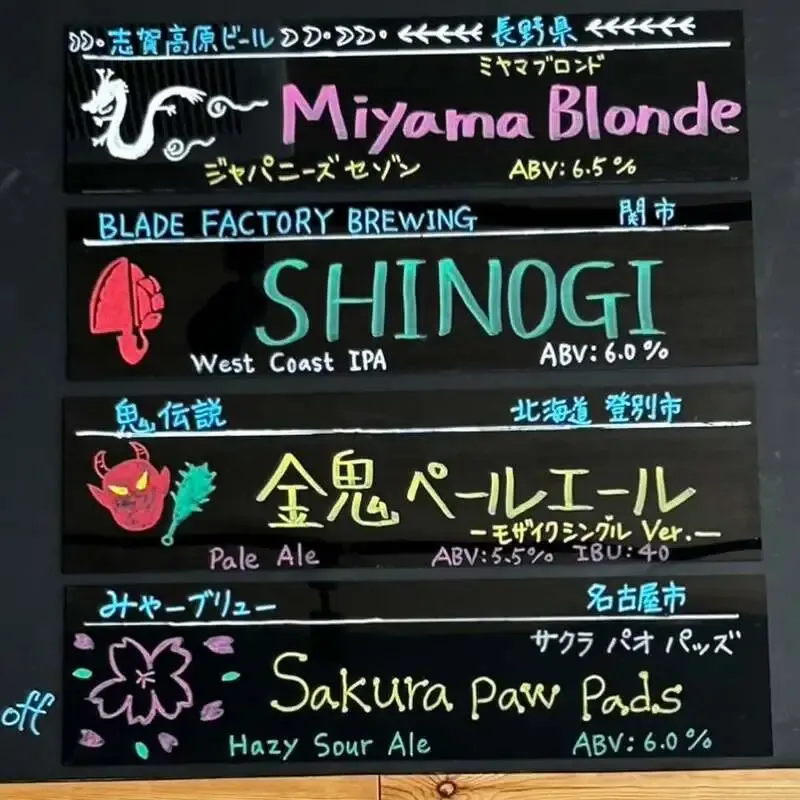 志賀高原ビール 長野県
ミヤマブロンド
Miyama Blonde
ジャパニーズセゾン ABV:6.5%
BLADE FACTORY BREWING 関市
SHINOGI
West Coast IPA ABV:6.0%
鬼伝説 北海道 登別市
金鬼ペールエール
-モザイクシングル Ver.-
Pale Ale ABV:5.5% IBU:40
みゃーブリュー 名古屋市
サクラ パオ パッズ
Sakura Paw Pads
off
Hazy Sour Ale ABV:6.0%